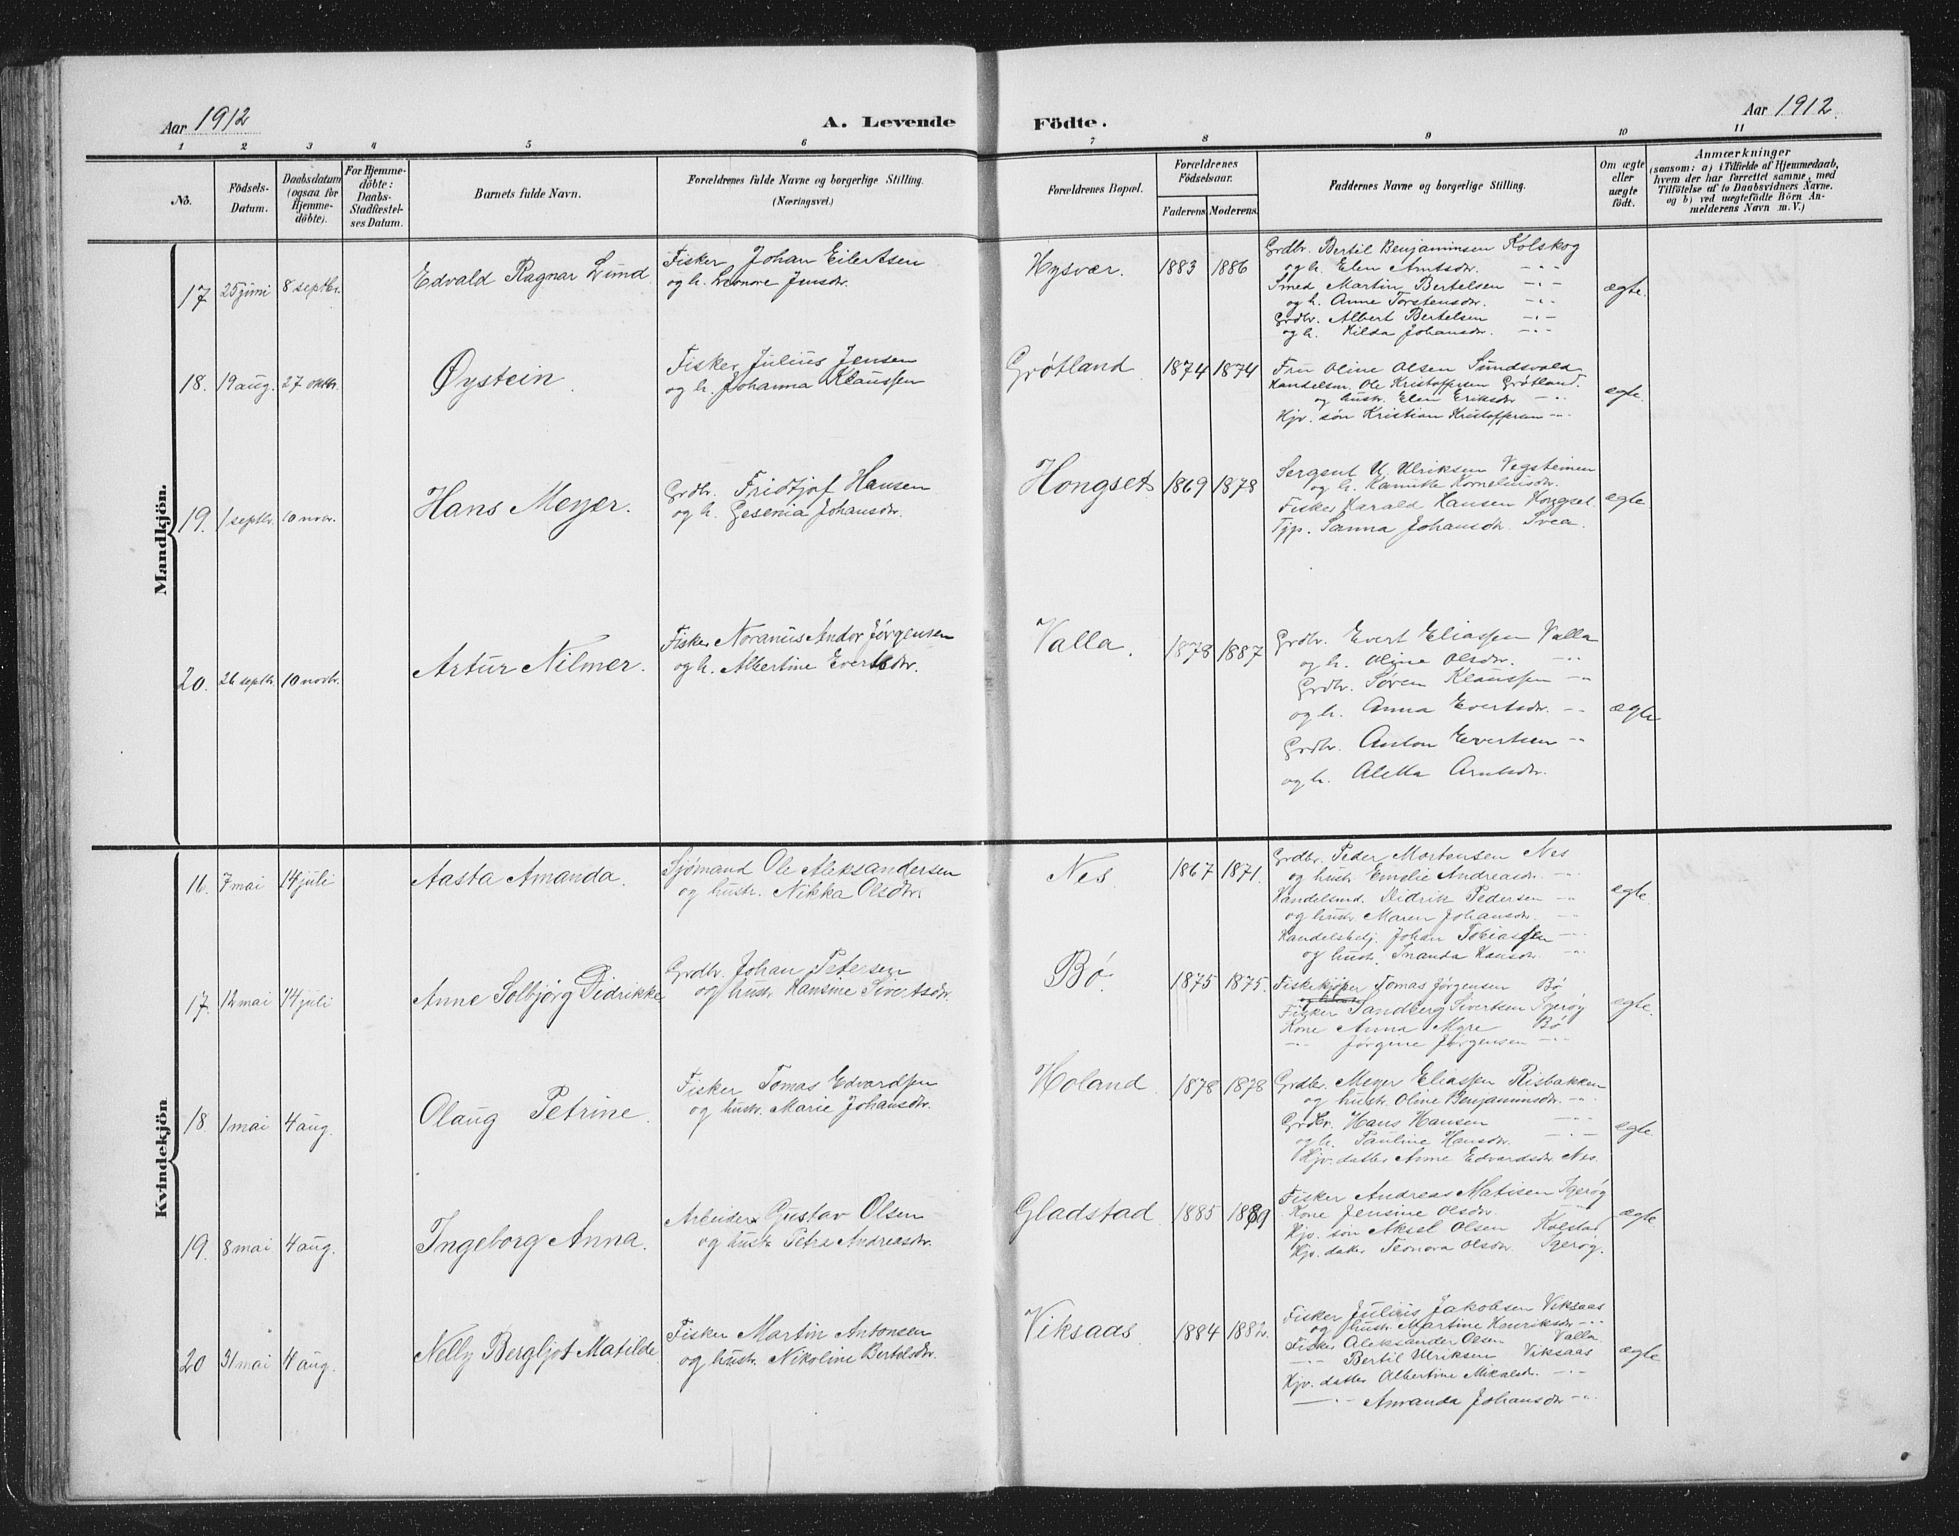 Aar 1912
A. Levende Födte.
Aar 1912.
1 2 3 4 5 6 7 8 9 10 11
No.
Födsels-
Datum.
Daabsdatum
(ogsaa for
Hjemme-
döbte).
For Hjemme-
döbte:
Daabs-
Stadfæstel-
ses Datum.
Barnets fulde Navn.
Forældrenes fulde Navne og borgerlige Stilling.
(Næringsvei.)
Forældrenes Bopæl.
Forældrenes
Födselsaar.
Faderens. Moderens.
Faddernes Navne og borgerlige Stilling.
Om ægte
eller
uægte
födt.
Anmærkninger
(saasom: a) i Tilfælde af Hjemmedaab,
hvem der har forrettet samme, med
Tilföielse af to Daabsvidners Navne.
og b) ved uægtefödte Börn An-
melderens Navn m. V.)
Mandkjön.
17 25 juni 8 septbr. Edvald Ragnar Lund
Fisker Johan Eilertsen
og h. Leonore Jensdr.
Hysvær. 1883 1886
Grdbr. Bertil Benjaminsen Kolskog
og h. Elen Arntsdr. -"-
Smed Martin Bertelsen -"-
og h. Anne Torstensdr. -"-
Grdbr. Albert Bertelsen -"-
og h. Hilda Johansdr. -"-
ægte.
18. 19 aug. 27 oktbr. Øystein
Fisker Julius Jensen
og h. Johanna Klaussen
Grøtland 1874 1874
Fru Oline Olsen Sundsvold
Handelsm. Ole Kristoffersen Grøtland.
og hustr. Elen Eriksdr -"-
Hjv. søn Kristian Kristoffersen -"-
egte.
19. 1 septbr. 10 novr. Hans Meyer.
Grdbr. Fridtjof Hansen
og h. Gesenia Johansdr.
Hongset 1869 1878
Sergent U. Ulriksen Vegsteinen
og h. Kornelinsdr.
Fisker Harald Hansen Honggset
Tjp. Sanna Johansdr. Svea.
egte
20. 26 septbr. 10 novbr. Artur Nilmer.
Fisker Noranus Andor Jørgensen
og h. Albertine Evertsdr.
Valla. 1878 1887
Grdbr. Evert Eliassen Valla
og h. Oline Olsdr. -"-
Grdbr. Søren Klaussen -"-
og h. Anna Evertsdr. -"-
Grdbr. Anton Evertsen -"-
og h. Aletta Arntsdr.
ægte
Kvindekjön
16. 7 mai 14 juli Aasta Amanda.
Sjømand Ole Aleksandersen
og hustr. Nikka Olsdr.
Nes. 1867 1871.
Grdbr. Peder Mortensen Nes
og hustr Emelie Andreasdr. -"-
Handelsmd. Didrik Pedersen -"-
og hustr Maren Johansdr. -"-
Handelsbetj. Johan Tobiassen -"-
og hustr. Inanda Hansdr. -"-
egte.
17. 12 mai 14 juli Anne Solbjørg Didrikke
Grdbr. Johan Petersen
og hustr Hansine Sivertsdr.
Bø. 1875 1875.
Fiskekjøper Tomas Jørgensen Bø
Fisker Sandberg Sivertsen Igerøy
Kone Anna Myre Bø
-"- Jørgine Jørgensen -"-
egte.
18. 1 mai 4 aug. Olaug Petrine.
Fisker Tomas Edvardsen
og hustr. Marie Johansdr.
Holand 1878 1878
Grdbr. Meyer Eliassen Risbakken
og hustr. Oline Benjaminsdr. -"-
Grdbr. Hans Hansen -"-
og h. Pauline Hansdr. -"-
Hjv. datter Anne Edvardsdr. Nes.
egte.
19. 8 mai 4 aug. Ingeborg Anna.
Arbeider Gustav Olsen
og hustr Petra Andreasdr.
Gladstad 1885 1889
Fisker Andreas Matisen Igerøy
Kone Jensine Olsdr. -"-
Hjv. søn Aksel Olsen Kolstad
Hjv. datter Leonora Olsdr Igerøy.
ægte.
20 31 mai 4 aug. Nelly Bergljot Matilde
Fisker Martin Antonsen
og hustr. Nikoline Bertelsdr.
Viksaas 1884 1882.
Fisker Julius Jakobsen Viksaas
og hustr. Martine Henriksdr -"-
Fisker Aleksander Olsen Valla
-"- Bertil Ulriksen Viksaas
Hjv. datter Albertine Mikalsdr. -"-
-"- Amanda Johansdr -"-
ægte